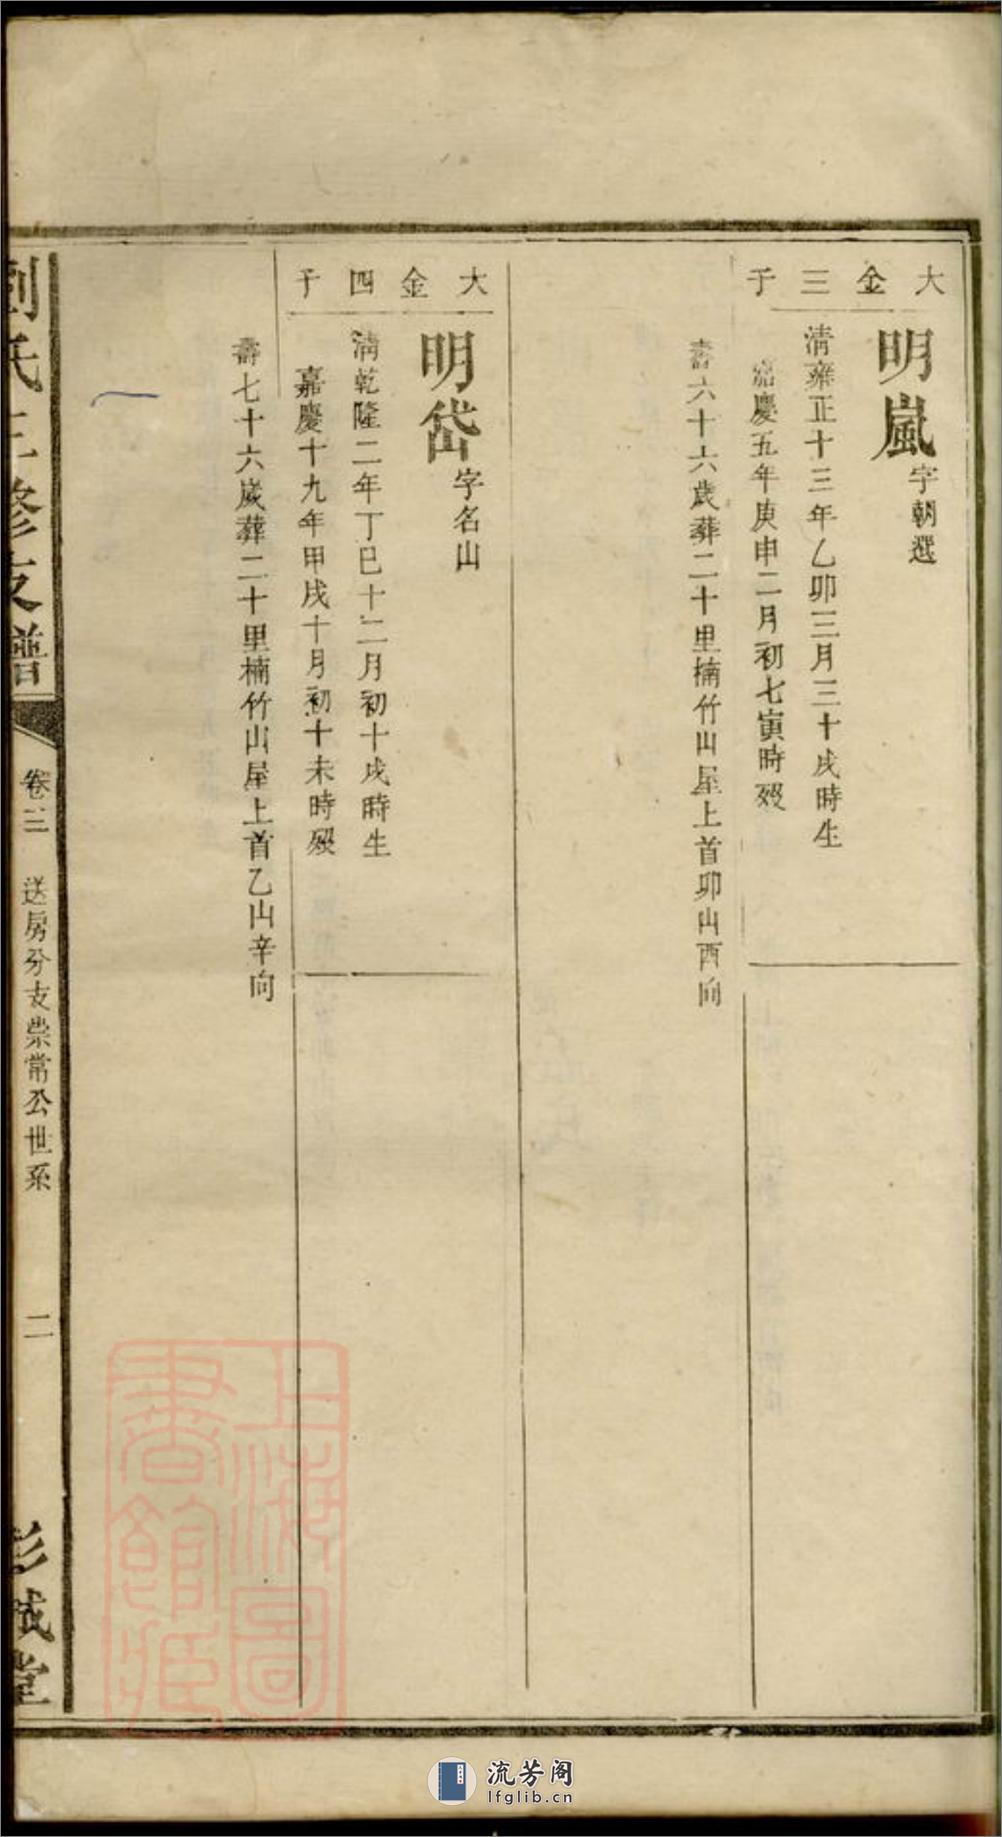 大金三子
明嵐字朝選
清雍正十三年乙卯三月三十戌時生
嘉慶五年庚申二月初七寅時歿
壽六十六歲葬二十里楠竹山屋上首卯山酉向
大金四子
明岱字名山
清乾隆二年丁巳十二月初十戌時生
嘉慶十九年甲戌十月初十未時歿
壽七十六歲葬二十里楠竹山屋上首乙山辛向
劉氏三修支譜
卷三
送房分支崇常公世系
二
彭城堂
上海圖書館藏
流芳阁
lfglib.cn